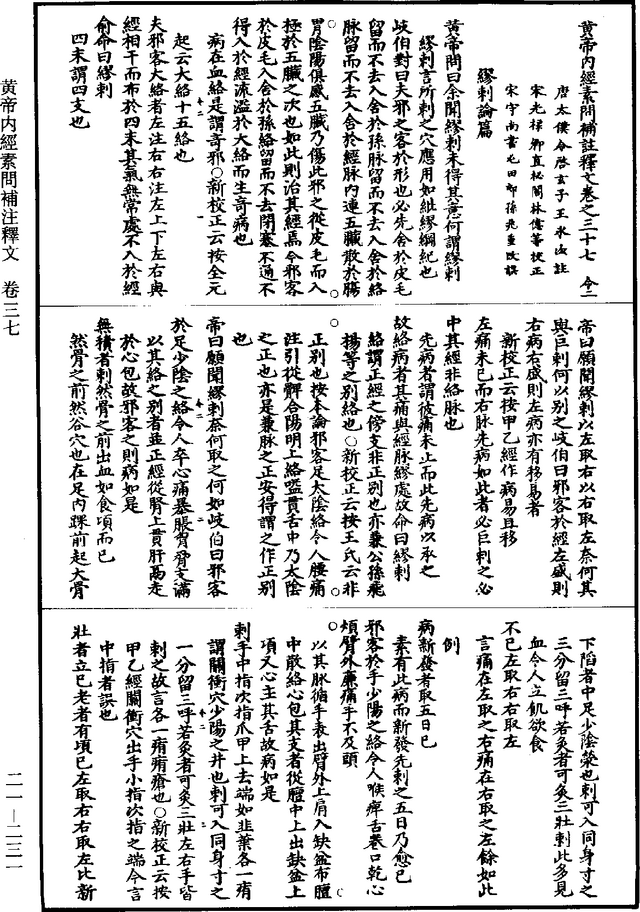 黃帝內經素問補註釋文卷之三十七 命二
唐太僕令啓玄子王冰次註
宋光祿卿直秘閣林億等校正
宋守尚書屯田郎孫兆重改誤
繆刺論篇
黃帝問曰余聞繆刺未得其意何謂繆刺
繆刺言所刺之穴應用如紕繆綱紀也
歧伯對曰夫邪之客於形也必先舍於皮毛
留而不去入舍於孫脉留而不去入舍於絡
脉留而不去入舍於經脉內連五臟散於腸
胃陰陽俱感五臟乃傷此邪之從皮毛而入
極於五臟之次也如此則治其經焉今邪客
於皮毛入舍於孫絡留而不去閉塞不通不
得入於經流溢於大絡而生奇病也
病在血絡是謂奇邪○新校正云按全元
起云大絡十五絡也
夫邪客大絡者左注右右注左上下左右與
經相干而布於四末其氣無常處不入於經
俞命曰繆刺
四末謂四支也
帝曰願聞繆刺以左取右以右取左奈何其
與巨刺何以別之歧伯曰邪客於經左盛則
右病右盛則左病亦有移易者
新校正云按甲乙經作病易且移
左痛未已而右脉先病如此者必巨刺之必
中其經非絡脉也
先病者謂彼痛未止而此先病以承之
故絡病者其痛與經脉繆處故命曰繆刺
絡謂正經之傍支非正別也亦兼公孫飛
揚等之別絡也○新校正云按王氏云非
正別也按本論邪客足太陰絡令人腰痛
注引從髀合陽明上絡嗌貫舌中乃太陰
之正也亦是兼脉之正安得謂之作正別
也
帝曰願聞繆刺奈何取之何如歧伯曰邪客
於足少陰之絡令人卒心痛暴脹胷脅支滿
以其絡之別者並正經從腎上貫肝鬲走
於心包故邪客之則病如是
無積者刺然骨之前出血如食頃而已
然骨之前然谷穴也在足內踝前起大骨
下陷者中足少陰滎也刺可入同身寸之
三分留三呼若灸者可灸三壯刺此多見
血令人立飢欲食
不已左取右右取左
言痛在左取之右痛在右取之左餘如此
例
病新發者取五日已
素有此病而新發先刺之五日乃愈已
邪客於手少陽之絡令人喉痺舌卷口乾心
煩臂外廉痛手不及頭
以其脉循手表出臂外上肩入缺盆布膻
中散絡心包其支者從膻中上出缺盆上
項又心主其舌故病如是
刺手中指次指爪甲上去端如韭葉各一痏
謂關衝穴少陽之井也刺可入同身寸之
一分留三呼若灸者可灸三壯左右手皆
刺之故言各一痏痏瘡也○新校正云按
甲乙經關衝穴出手小指次指之端今言
中指者誤也
壯者立已老者有頃已左取右右取左此新
黃帝内經素問補注釋文 卷三七
二一-二三一